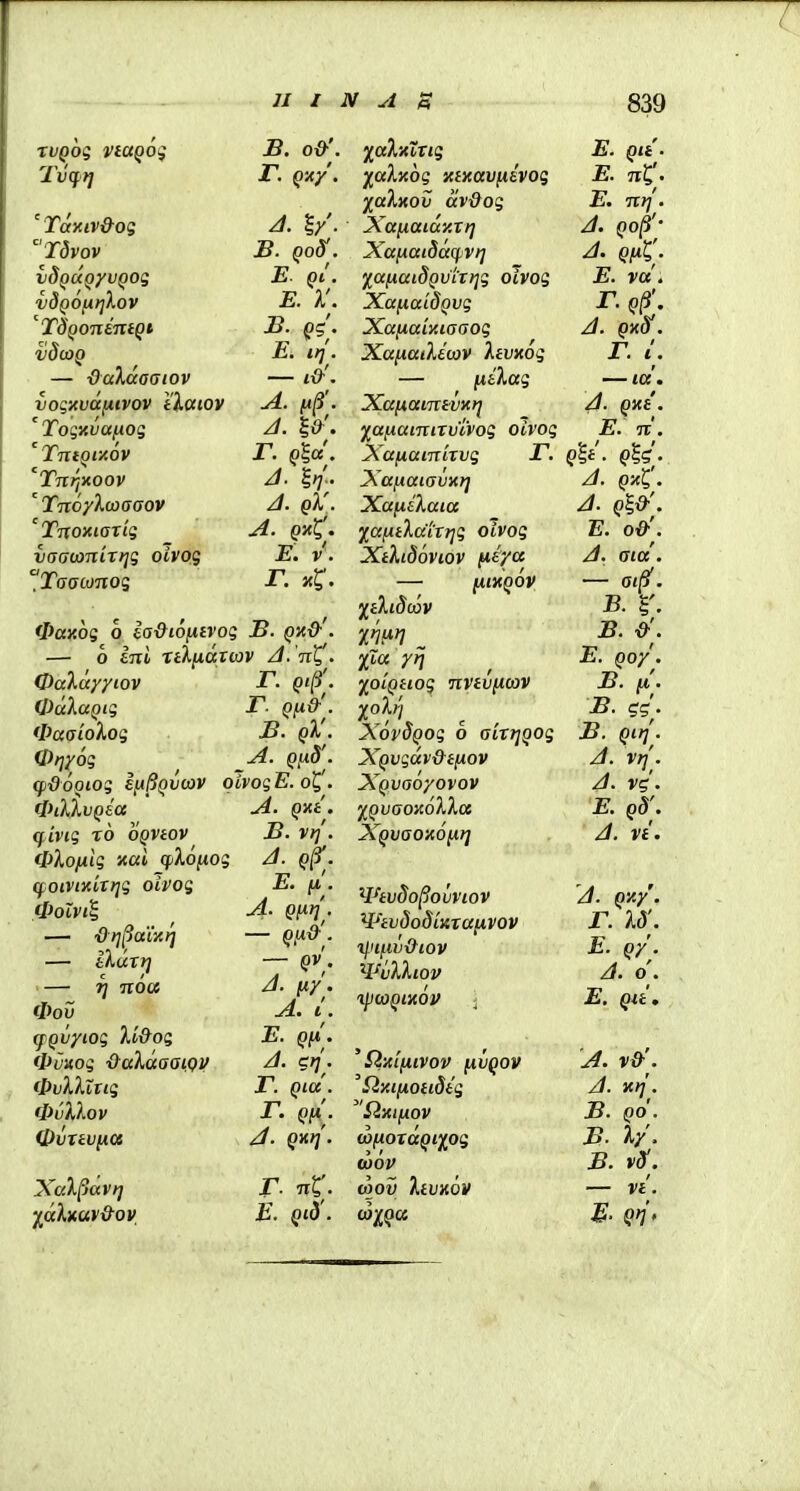 ΠΙΝΑΞ 839
τυρὸς νεαρός Β. οθ'.
Τύφη Γ. ρκγ'.
Ὑάκινθος Δ. ξγ'.
Ὕδνον Β. ροδ'.
ὑδράργυρος Ε. ρι'.
ὑδρόμηλον Ε. λ'.
Ὑδροπέπερι Β. ρς'.
ὕδωρ Ε. ιη'.
— θαλάσσιον — ιθ'.
ὑοςκυάμινον ἔλαιον Α. μβ'.
Ὑοςκύαμος Δ. ξθ'.
Ὑπερικόν Γ. ρξα'.
Ὑπήκοον Δ. ξη'.
Ὑπόγλωσσον Δ. ρλ'.
Ὑποκιστίς Α. ρκζ'.
ὑσσωπίτης οἶνος Ε. ν'.
Ὕσσωπος Γ. κζ'.
Φακὸς ὁ ἐσθιόμενος Β. ρκθ'.
— ὁ ἐπὶ τελμάτων Δ. πζ'.
Φαλάγγιον Γ. ριβ'.
Φάλαρις Γ. ρμθ'.
Φασίολος Β. ρλ'.
Φηγός Α. ρμδ'.
φθόριος ἐμβρύων οἶνος Ε. οζ'.
Φιλλυρέα Α. ρκε'.
φίνις τὸ ὄρνεον Β. νη'.
Φλομὶς καὶ φλόμος Δ. ρβ'.
φοινικίτης οἶνος Ε. μ'.
Φοῖνιξ Α. ρμη'.
— θηβαϊκὴ — ρμθ'.
— ἐλάτη — ρν'.
— ἡ πόα Δ. μγ'.
Φοῦ Α. ι'.
φρύγιος λίθος Ε. ρμ'.
Φῦκος θαλάσσιον Δ. ςη'.
Φυλλῖτις Γ. ρια'.
Φύλλον Γ. ρμ'.
Φύτευμα Δ. ρκη'.
Χαλβάνη Γ. πζ'.
χάλκανθον Ε. ριδ'.
χαλκῖτις Ε. ριε'.
χαλκὸς κεκαυμένος Ε. πζ'.
χαλκοῦ ἄνθος Ε. πη'.
Χαμαιάκτη Δ. ροβ'.
Χαμαιδάφνη Δ. ρμζ'.
χαμαιδρυΐτης οἶνος Ε. να'.
Χαμαίδρυς Γ. ρβ'.
Χαμαίκισσος Δ. ρκδ'.
Χαμαιλέων λευκός Γ. ι'.
— μέλας — ια'.
Χαμαιπεύκη Δ. ρκε'.
χαμαιπιτυΐνος οἶνος Ε. π'.
Χαμαιπίτυς Γ. ρξε'. ρξς'.
Χαμαισύκη Δ. ρκζ'.
Χαμελαία Δ. ρξθ'.
χαμελαΐτης οἶνος Ε. οθ'.
Χελιδόνιον μέγα Δ. σια'.
— μικρόν — σιβ'.
χελιδών Β. ξ'.
χήμη Β. θ'.
χῖα γῆ Ε. ρογ'.
χοίρειος πνεύμων Β. μ'.
χολή Β. ςς'.
Χόνδρος ὁ σίτηρος Β. ριη'.
Χρυςάνθεμον Δ. νη'.
Χρυσόγονον Δ. νς'.
χρυσοκόλλα Ε. ρδ'.
Χρυσοκόμη Δ. νε'.
Ψευδοβούνιον Δ. ρκγ'.
Ψευδοδίκταμνον Γ. λδ'.
ψιμύθιον Ε. ργ'.
Ψύλλιον Δ. ο'.
ψωρικόν Ε. ριε'.
Ὠκίμινον μύρον Α. νθ'.
Ὠκιμοειδές Δ. κη'.
Ὤκιμον Β. ρο'.
ὠμοτάριχος Β. λγ'.
ὠόν Β. νδ'.
ὠοῦ λευκόν — νε'.
ὤχρα Ε. ρη'.